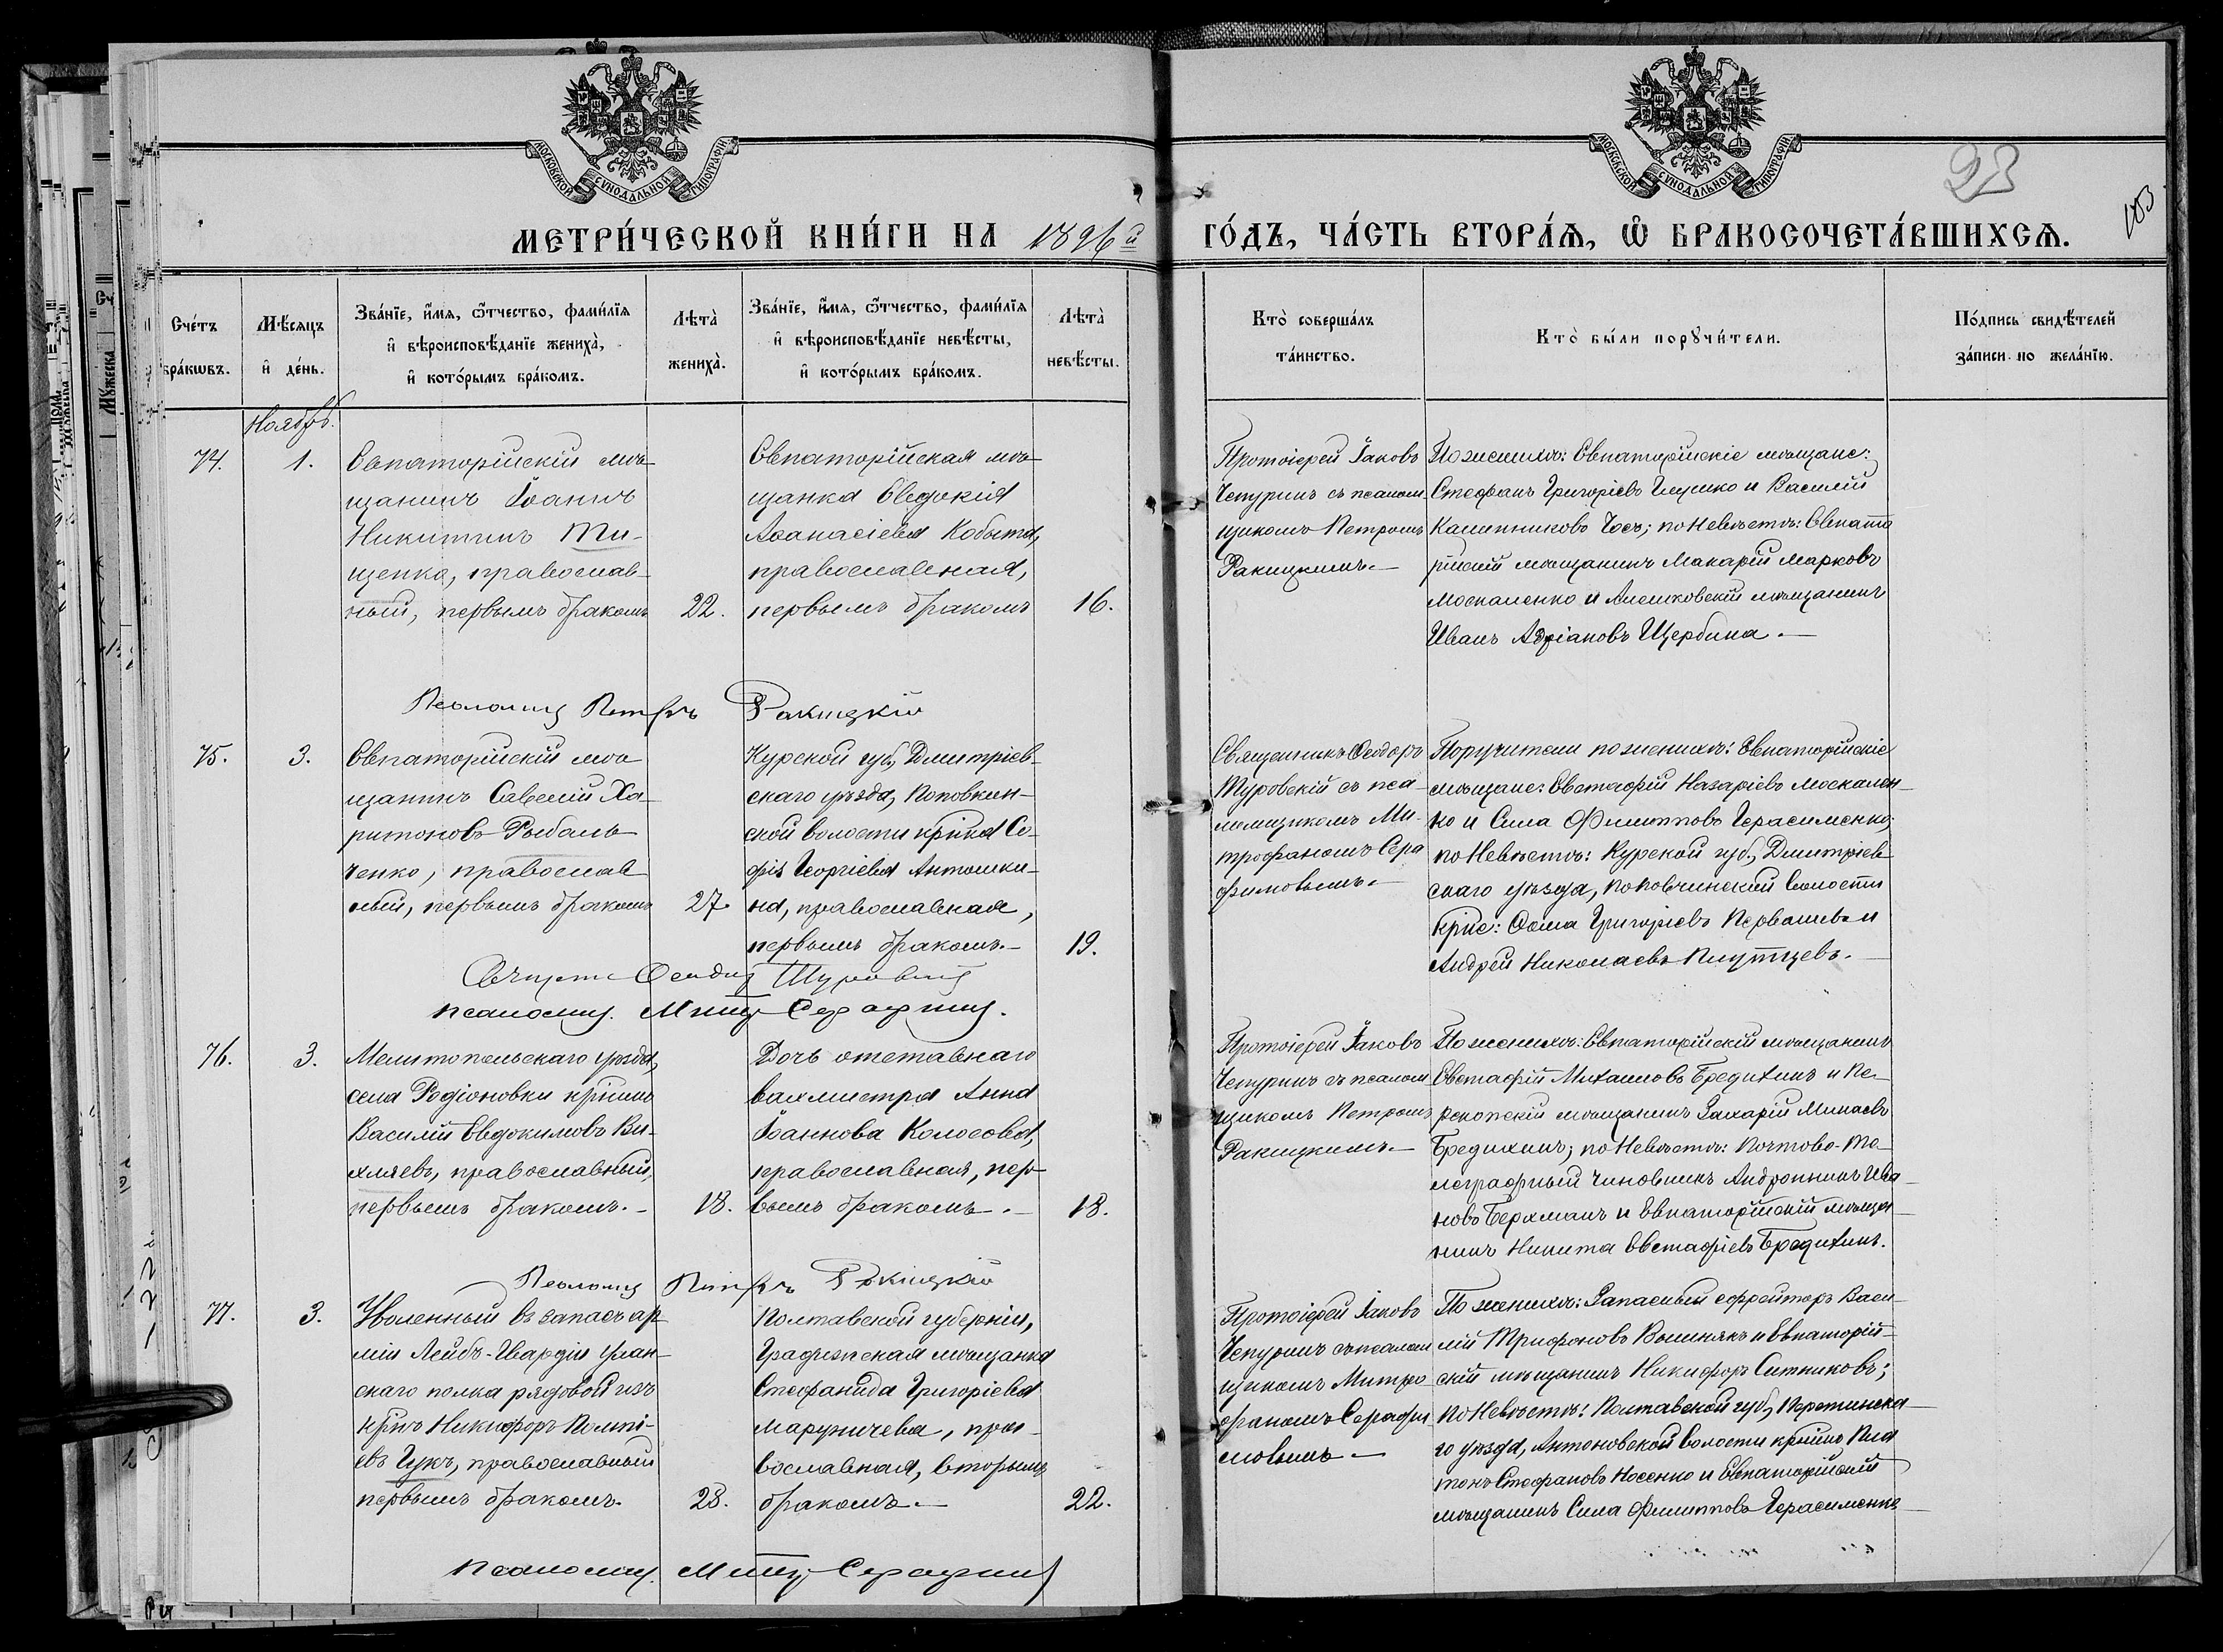 МОСКОВСКОЙ СѴНОДАЛЬНОЙ ТИПОГРАФІИ
МОСКОВСКОЙ СѴНОДАЛЬНОЙ ТИПОГРАФІИ
23
103
МЕТРИ́ЧЕСКОЙ КНИ́ГИ НА 1896й ГО́ДЪ, ЧА́СТЬ ВТОРА́Ѧ, Ѡ҆ БРАКОСОЧЕТА́ВШИХСѦ.
Сче́тъ
бра́кѡвъ.
Мѣ́сяцъ
и҆ де́нь.
Зва́нїе, и҆́мѧ, ѻ҆́тчество, фами́лїѧ
и҆ вѣроисповѣ́данїе жениха̀,
и҆ кото́рымъ бра́комъ.
Лѣта̀
жениха̀.
Зва́нїе, и҆́мѧ, ѻ҆́тчество, фами́лїѧ
и҆ вѣроисповѣ́данїе невѣ́сты,
и҆ кото́рымъ бра́комъ.
Лѣта̀
невѣ́сты.
Кто̀ соверша́лъ
та́инство.
Кто̀ бы́ли порꙋчи́тели.
По́дпись свидѣ́телей
за́писи по жела́нїю.
Ноябрь.
74.
1.
Евпаторійскій мѣ-
щанинъ Іоаннъ
Никитинъ Ти-
щенко, православ-
ный, первымъ бракомъ
22.
Евпаторійская мѣ-
щанка Евдокія
Аѳанасіева Кобыта,
православная,
первымъ бракомъ
16.
Протоіерей Іаковъ
Чепуринъ съ псалом-
щикомъ Петромъ
Ракицкимъ.—
По женихѣ: Евпаторійскіе мѣщане:
Стефанъ Григоріевъ Глушко и Василій
Калинниковъ Чосъ; по Невѣстѣ: Евпато
рійскій мѣщанинъ Макарій Марковъ
Москаленко и Алешковскій мѣщанинъ
Иванъ Адріановъ Щербина.—
Псаломщ Петръ Ракицкій
75.
3.
Евпаторійскій мѣ
щанинъ Савелій Ха-
ритоновъ Рыбаль-
ченко, православ
ный, первымъ бракомъ
27.
Курской губ., Дмитріев-
скаго уѣзда, Поповкин-
ской волости крѣнка Со-
фія Георгіева Антошки-
на, православная,
первымъ бракомъ.—
19.
Священникъ Ѳеодоръ
Туровскій съ пса-
ломщикомъ Ми-
трофаномъ Сера
фимовымъ.—
Поручители по женихѣ: Евпаторійскіе
мѣщане: Евстафій Назаріевъ Москален-
ко и Сила Филипповъ Герасименко;
по Невѣстѣ: Курской губ., Дмитріев
скаго уѣзда, волости
Ѳома Григорьевъ и
Андрей Николаевъ
псаломщ. Митр Серафим.
76.
3.
Мелитопольскаго уѣзда,
села Родіоновки крѣнинъ
Василій Евдокимовъ Ви-
хляевъ, православный,
первымъ бракомъ.—
18.
Дочь отставнаго
вахмистра Анна
Іоаннова Колосова,
православная, пер-
вымъ бракомъ.—
18.
Протоіерей Іаковъ
Чепуринъ съ псалом
щикомъ Петромъ
Ракицкимъ.—
По женихѣ: Евпаторійскій мѣщанинъ
Евстафій Михаиловъ Бредихинъ и Пе-
рекопскій мѣщанинъ Захарій Минаевъ
Бредихинъ; по Невѣстѣ: Почтово-Те-
леграфный чиновникъ Андроникъ Ива-
новъ Берхманъ и Евпаторійскій мѣща-
нинъ Никита Евстафіевъ Бредихинъ.
Псаломщ Петръ Ракицкій
77.
3.
Уволенный въ запасъ ар
міи Лейбъ-Гвардіи Улан-
скаго полка рядовой изъ
крѣнъ Никифоръ
Гукъ, православный
первымъ бракомъ.
28.
Полтавской губерніи,
Градижская мѣщанка
Стефанида Григоріева
Маруничева, пра-
вославная, вторымъ
бракомъ.—
22.
Протоіерей Іаковъ
Чепуринъ съ псалом
щикомъ Митро
фаномъ Серафи
мовымъ.—
По женихѣ: Запасный ефрейторъ Васи-
лій Трифоновъ Волинякъ и Евпаторій-
скій мѣщанинъ Никифоръ Ситниковъ;
по Невѣстѣ: Полтавской губ.,
го уѣзда, Антоновской волости крѣнинъ Пла
тонъ Стефановъ Носенко и Евпаторійскій
мѣщанинъ Сила Филипповъ Герасименко
псаломщ. Митр Серафим